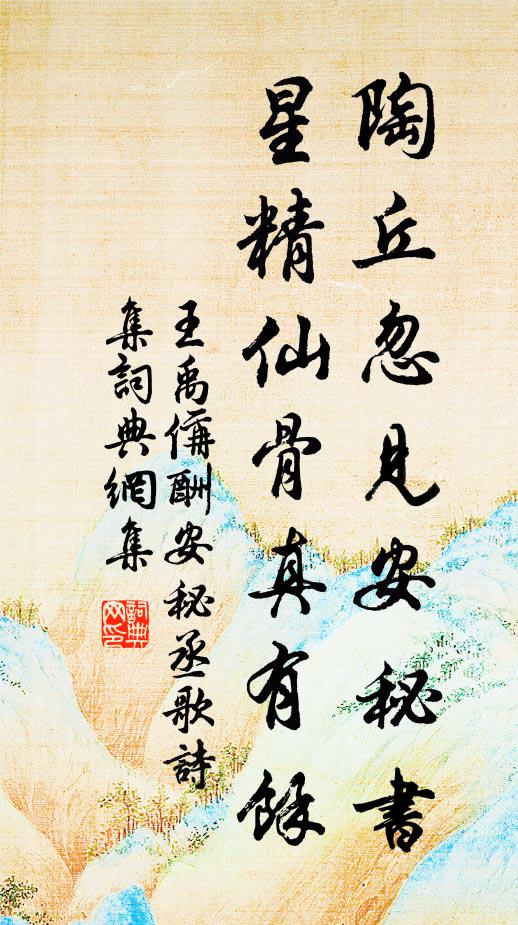 陶丘忽見安秘書
星精仙骨真有餘
王禹偁酬安秘丞歌詩
集詞典網集
詞典網印